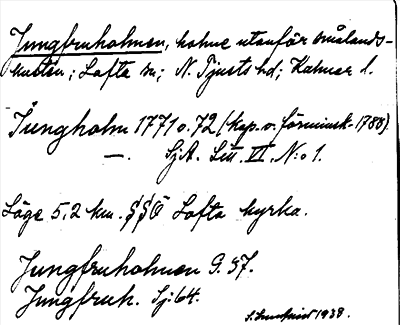 Jungfruholmen, holme utanför Smålands-
kusten; Lofta sn; N. Tjusts hd; Kalmar l.
Jungholm 1771 o. 72 (kop. o. förminsk. 1788)
—. SjA. Litt. VI. N:o 1.
Läge 5,2 km. SSÖ Lofta kyrka.
Jungfruholmen G. 57.
Jungfruh. Sj: 64.
1938.